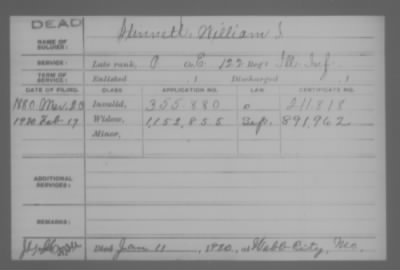 DEAD
NAME OF SOLDIER: Hennett, William S.
SERVICE: Late rank, P Co. E, 122 Reg't Ill. Inf.
TERM OF SERVICE: Enlisted , 1 Discharged , 1
DATE OF FILING. CLASS. APPLICATION NO. LAW. CERTIFICATE NO.
1880 Mar. 20 Invalid, 355.880 211.818
1920 Feb. 17 Widow, 1,152,855 Sept. 891,962
Minor,
ADDITIONAL SERVICES:
REMARKS:
Died Jan 11, 1920, at Webb City, Mo.